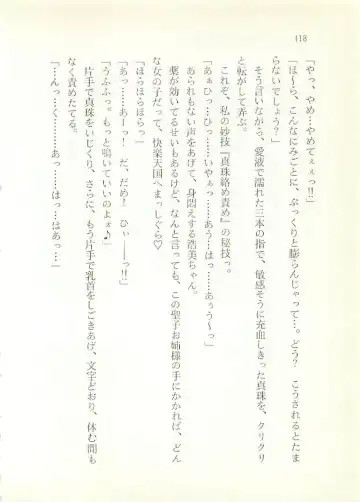 118
「やっ、やめ…やめてぇぇっ!!」
「ほ～ら、こんなにみごとに、ぷっくりと膨らんじゃって…。どう? こうされるとたま
らないでしょう?」
そう言いながら、愛液で濡れた三本の指で、敏感そうに充血しきった真珠を、クリクリ
と転がして弄ぶ。
これぞ、私の妙技『真珠絡め責め』の秘技っ。
「あぁひっ…ひっ……いやぁっ……あう…はっ……あぅう～っ」
あられもない声をあげて、身悶えする浩美ちゃん。
薬が効いてるせいもあるけど、なんと言っても、この聖子お姉様の手にかかれば、どん
な女の子だって、快楽天国へまっしぐら♡
「ほらほらほらっ」
「あっ……あーっ! だ、だめ! ひぃ――っ!!」
「うふふっ。もっと鳴いていいのよぉ♪」
片手で真珠をいじくり、さらに、もう片手で乳首をしごきあげ、文字どおり、休む間も
なく責めたてる。
「…んっ…く………あっ……はっ…はあっ…」